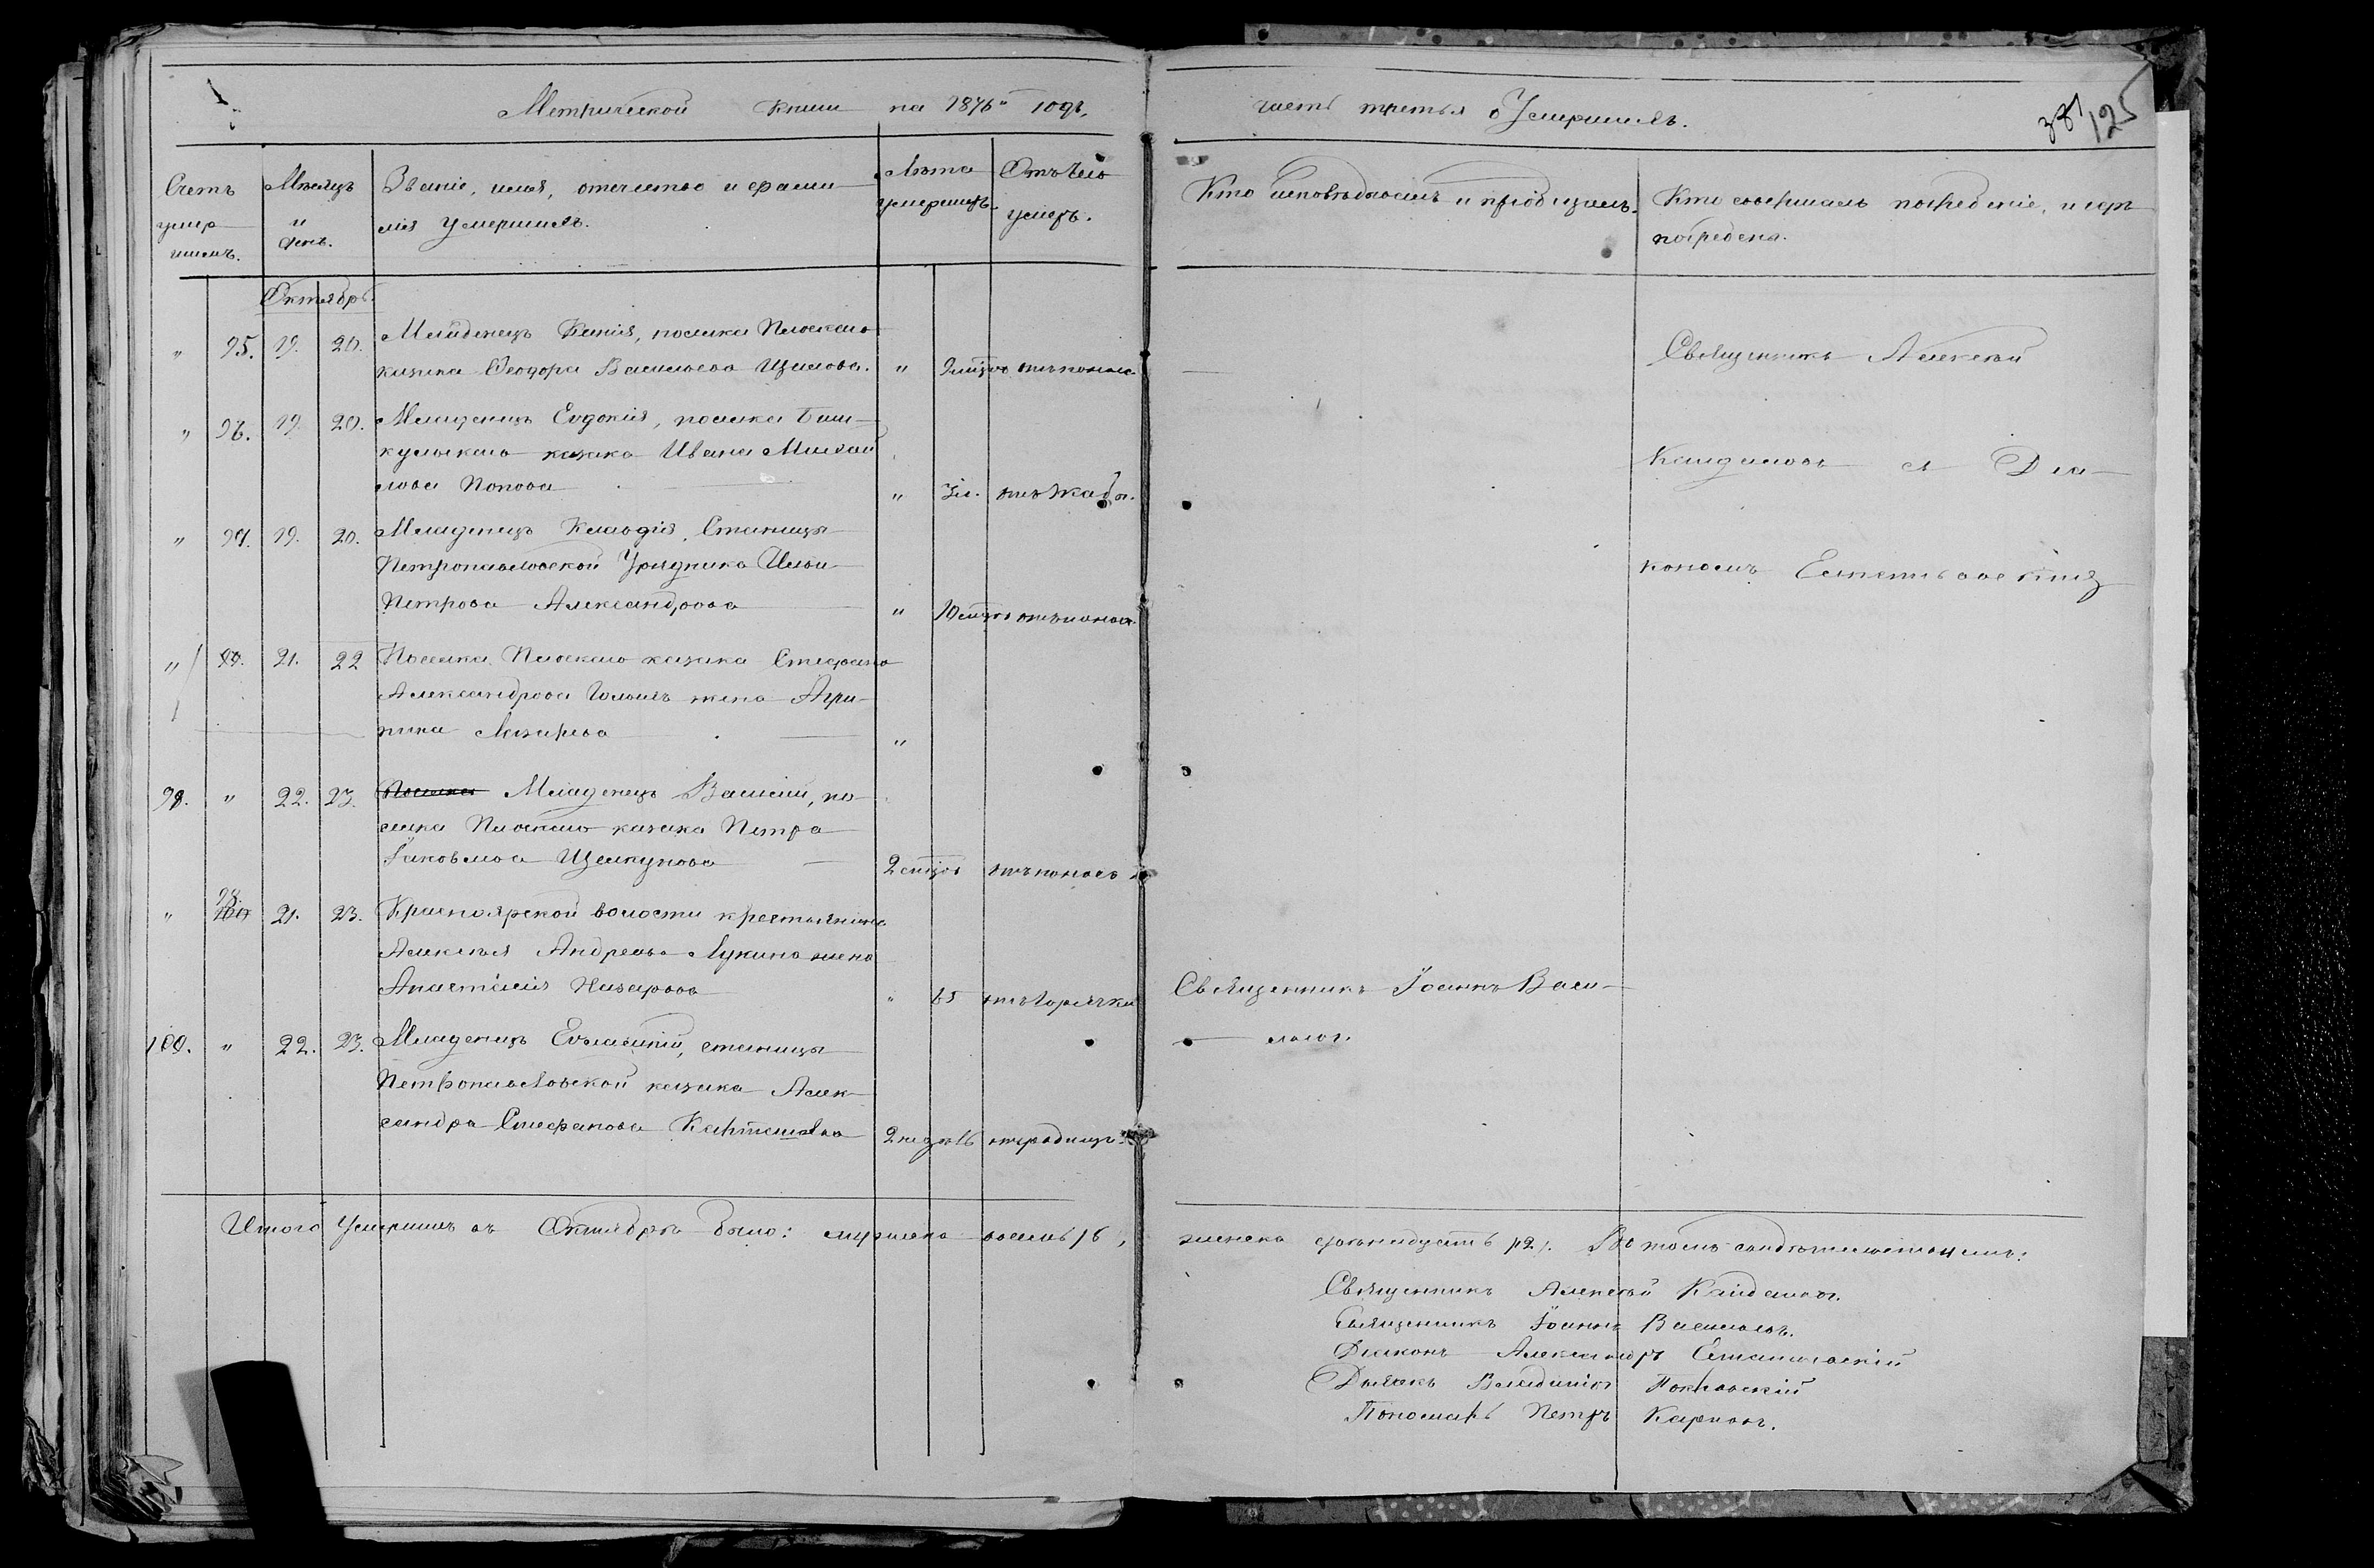 Метрической книги на 1876й годъ,
часть третья о Умершихъ.
387 125
Счетъ умер шимъ.
Мѣсяцъ и день.
Званіе, имя, отечество и фами
лія умершихъ.
Лѣта умершихъ.
Отъ чего умеръ.
Кто исповѣдывалъ и пріобщалъ.
Кто совершалъ погребеніе, и гдѣ
погребенъ.
Октябрь.
" 95. 19. 20. Младенецъ Ксенія, поселка Плоскаго
казака Ѳеодора Васильева " 2 мѣсяц. отъ поноса
Священникъ Алексѣй
" 96. 19. 20. Младенецъ Евдокія, поселка Баш-
кульскаго казака Ивана Михай
лова Попова " 3 н. отъ жабы.
Кайдаловъ съ Діа-
" 97. 19. 20. Младенецъ Клавдія, Станицы
Петропавловской Урядника Ильи
Петрова Александрова " 10 мѣсяц. отъ поноса.
кономъ
" 21. 22 Поселка Плоскаго казака Стефана
Александрова жена Агри-
пина Лазарева "
99. " 22. 23. Поселка Младенецъ Василій, по-
селка Плоскаго казака Петра
Іаковлева Щелкунова 2 мѣсяц. отъ поноса
98.
" 21. 23. Красноярской волости крестьянина
Алексѣя Андреева Лукина жена
Анастасія Назарова " 65 отъ горячки
Священникъ Іоаннъ Васи-
льевъ.
100. " 22. 23. Младенецъ Евлампій, станицы
Петропавловской казака Алек-
сандра Стефанова 2 отъ родимц.
Итого Умершихъ въ Октябрѣ было: мужеска восемь /8/,
женска двѣнадцать /12/. Въ томъ свидѣтельствуемъ:
Священникъ Алексѣй Кайдаловъ.
Священникъ Іоаннъ Васильевъ.
Діаконъ Александръ
Дьячекъ Владиміръ Покровскій
Пономарь Петръ Карповъ.